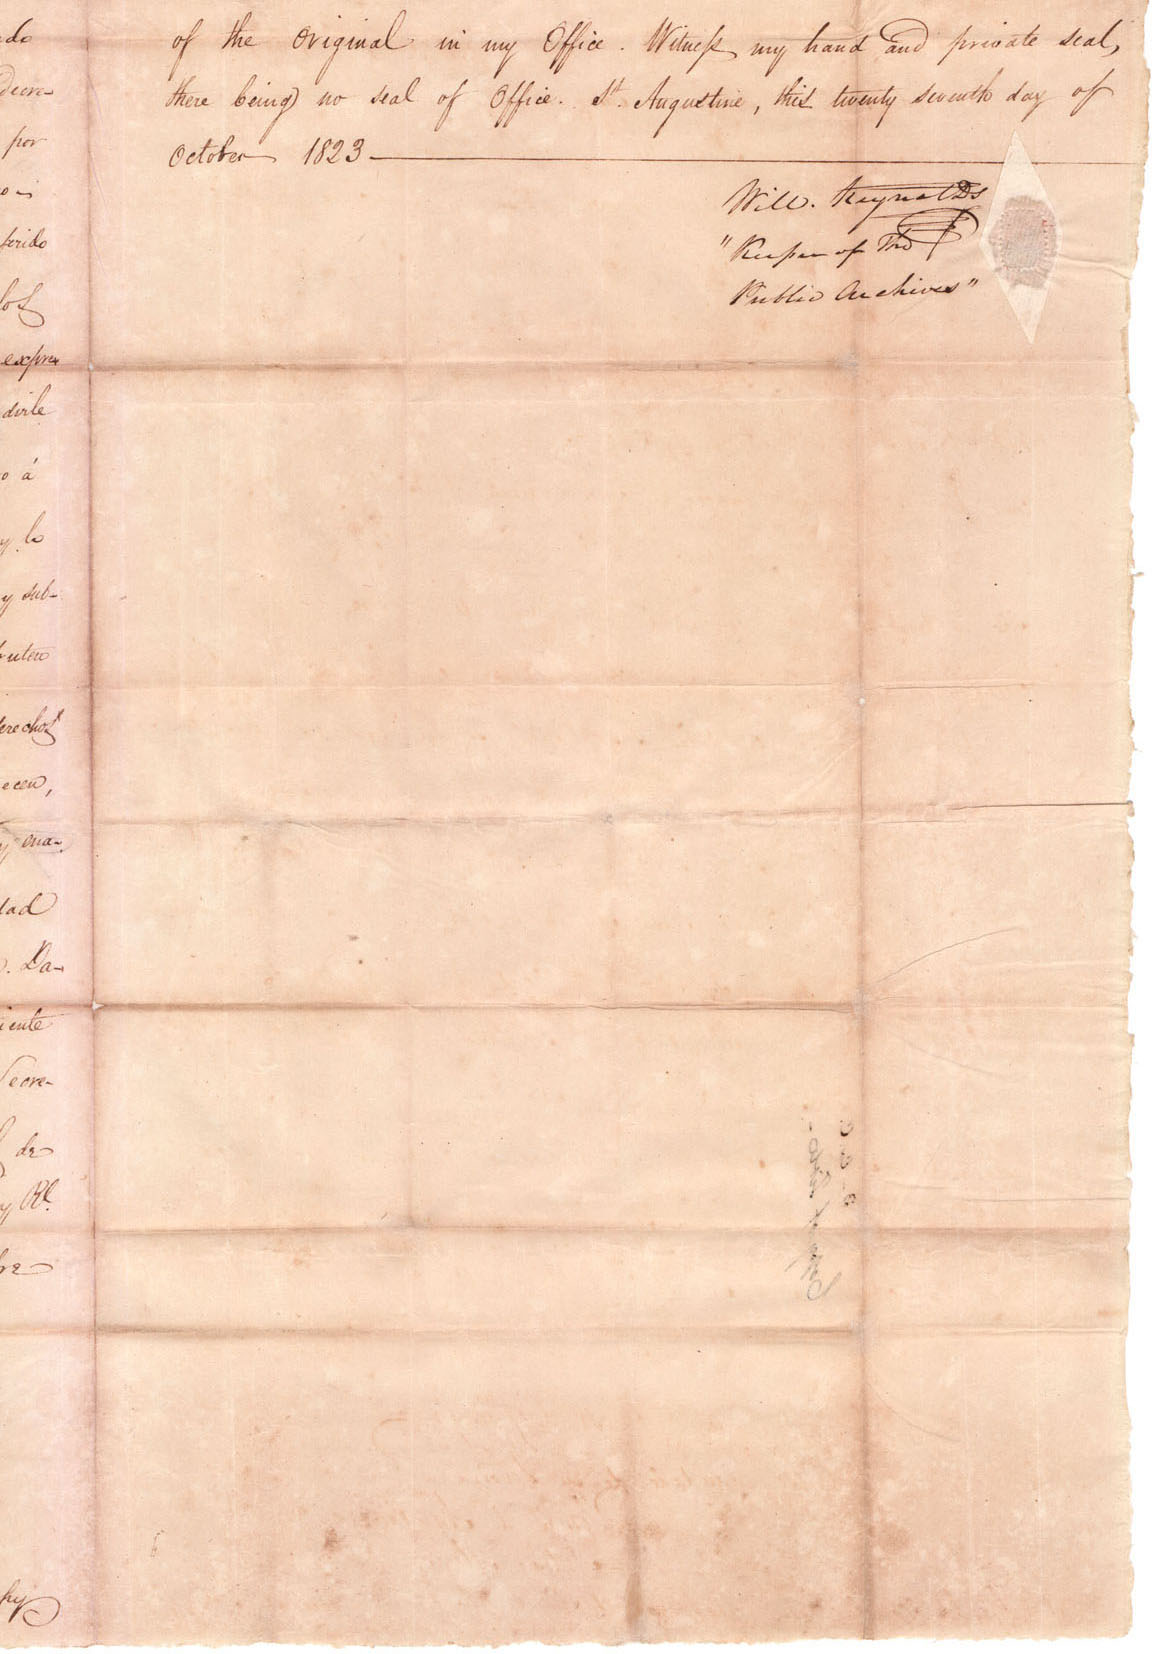 of the Original in my Office. Witness my hand and private seal,
there being no seal of Office. St. Augustine, this twenty seventh day of
October 1823
Will. Reynolds
"Keeper of the
Public Archives"
ado
Decre-
por
ferido
los
expre
dirle
o á
y lo
y sub-
buten
derechos
ecen,
y ena-
dad
. Da-
iente
Secre-
de
y Rl.
bre
hy